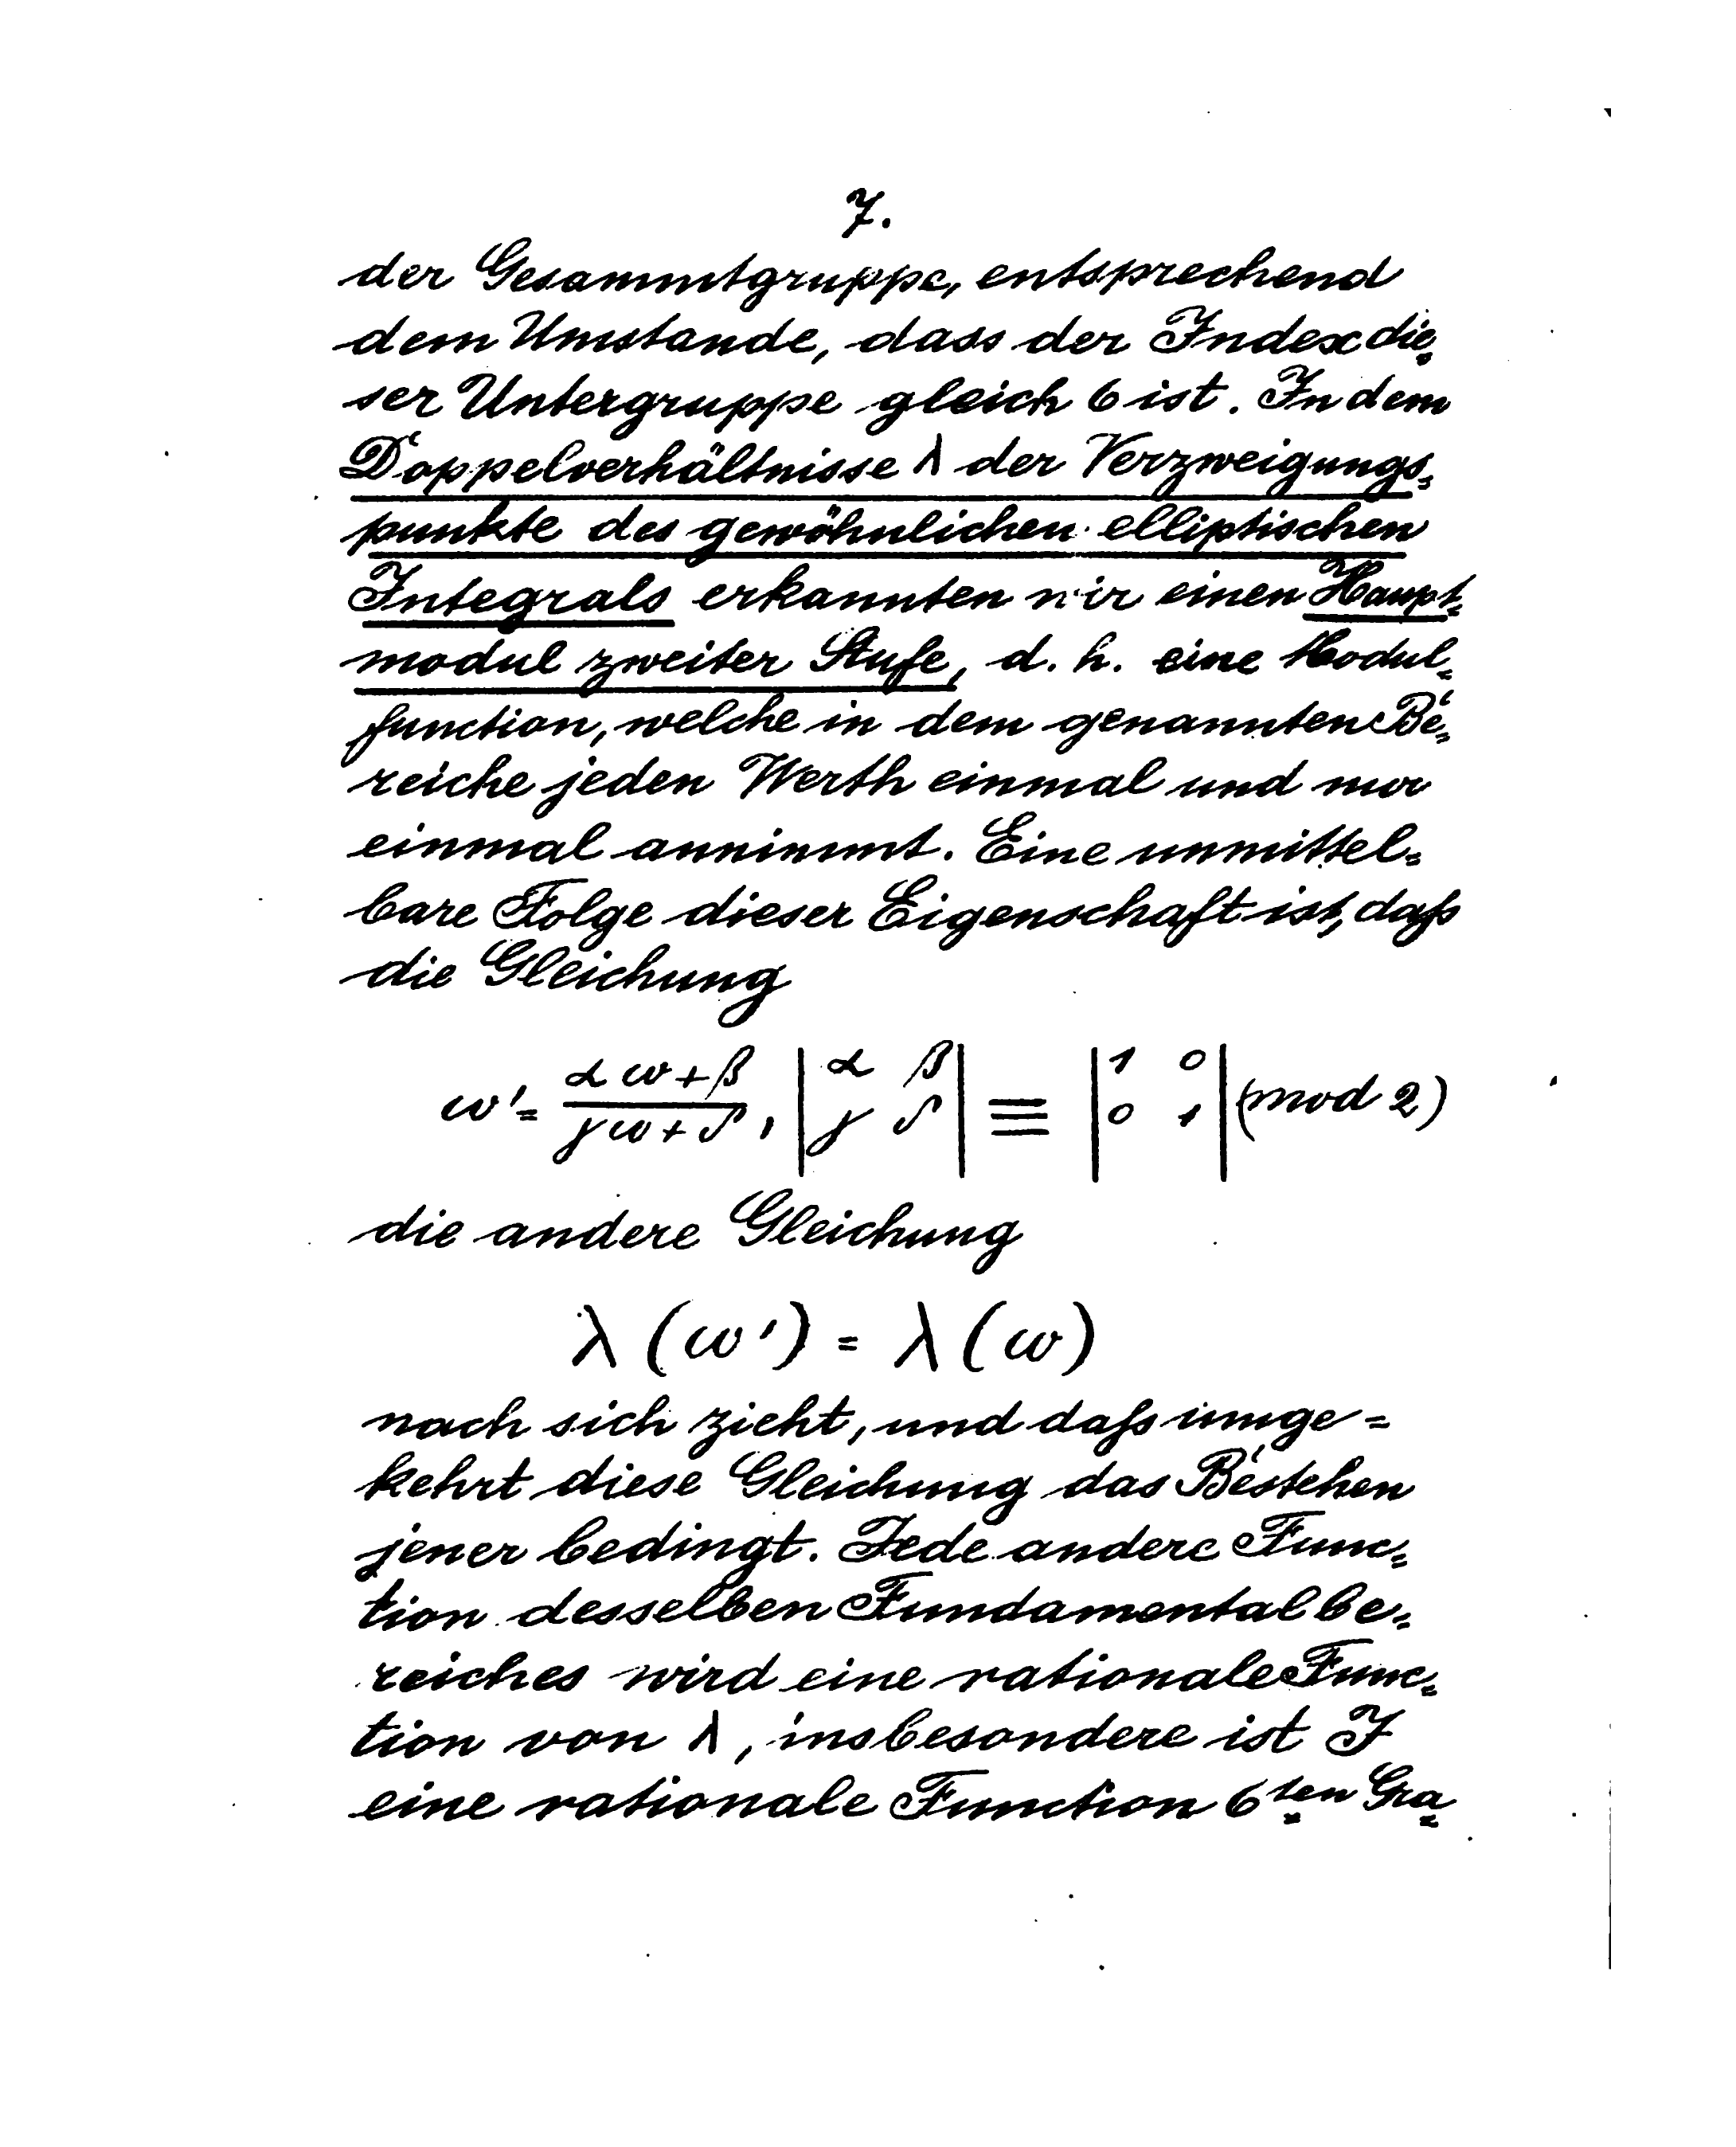 7.
der Gesammtgruppe, entsprechend
dem Umstande, dass der Index die=
ser Untergruppe gleich 6 ist. In dem
Doppelverhältnisse λ der Verzweigungs=
punkte des gewöhnlichen elliptischen
Integrals erkannten wir einen Haupt=
modul zweiter Stufe, d. h. eine Modul=
function, welche in dem genannten Be=
reiche jeden Werth einmal und nur
einmal annimmt. Eine unmittel=
bare Folge dieser Eigenschaft ist, daß
die Gleichung
ω' = \frac{αω+β}{γω+δ}, \begin{vmatrix} α & β \\ γ & δ \end{vmatrix} ≡ \begin{vmatrix} 1 & 0 \\ 0 & 1 \end{vmatrix} (mod 2)
die andere Gleichung
λ (ω') = λ (ω)
nach sich zieht, und daß umge=
kehrt diese Gleichung das Bestehen
jener bedingt. Jede andere Func=
tion desselben Fundamentalbe=
reiches wird eine rationale Func=
tion von λ, insbesondere ist J
eine rationale Function 6ten Gra=